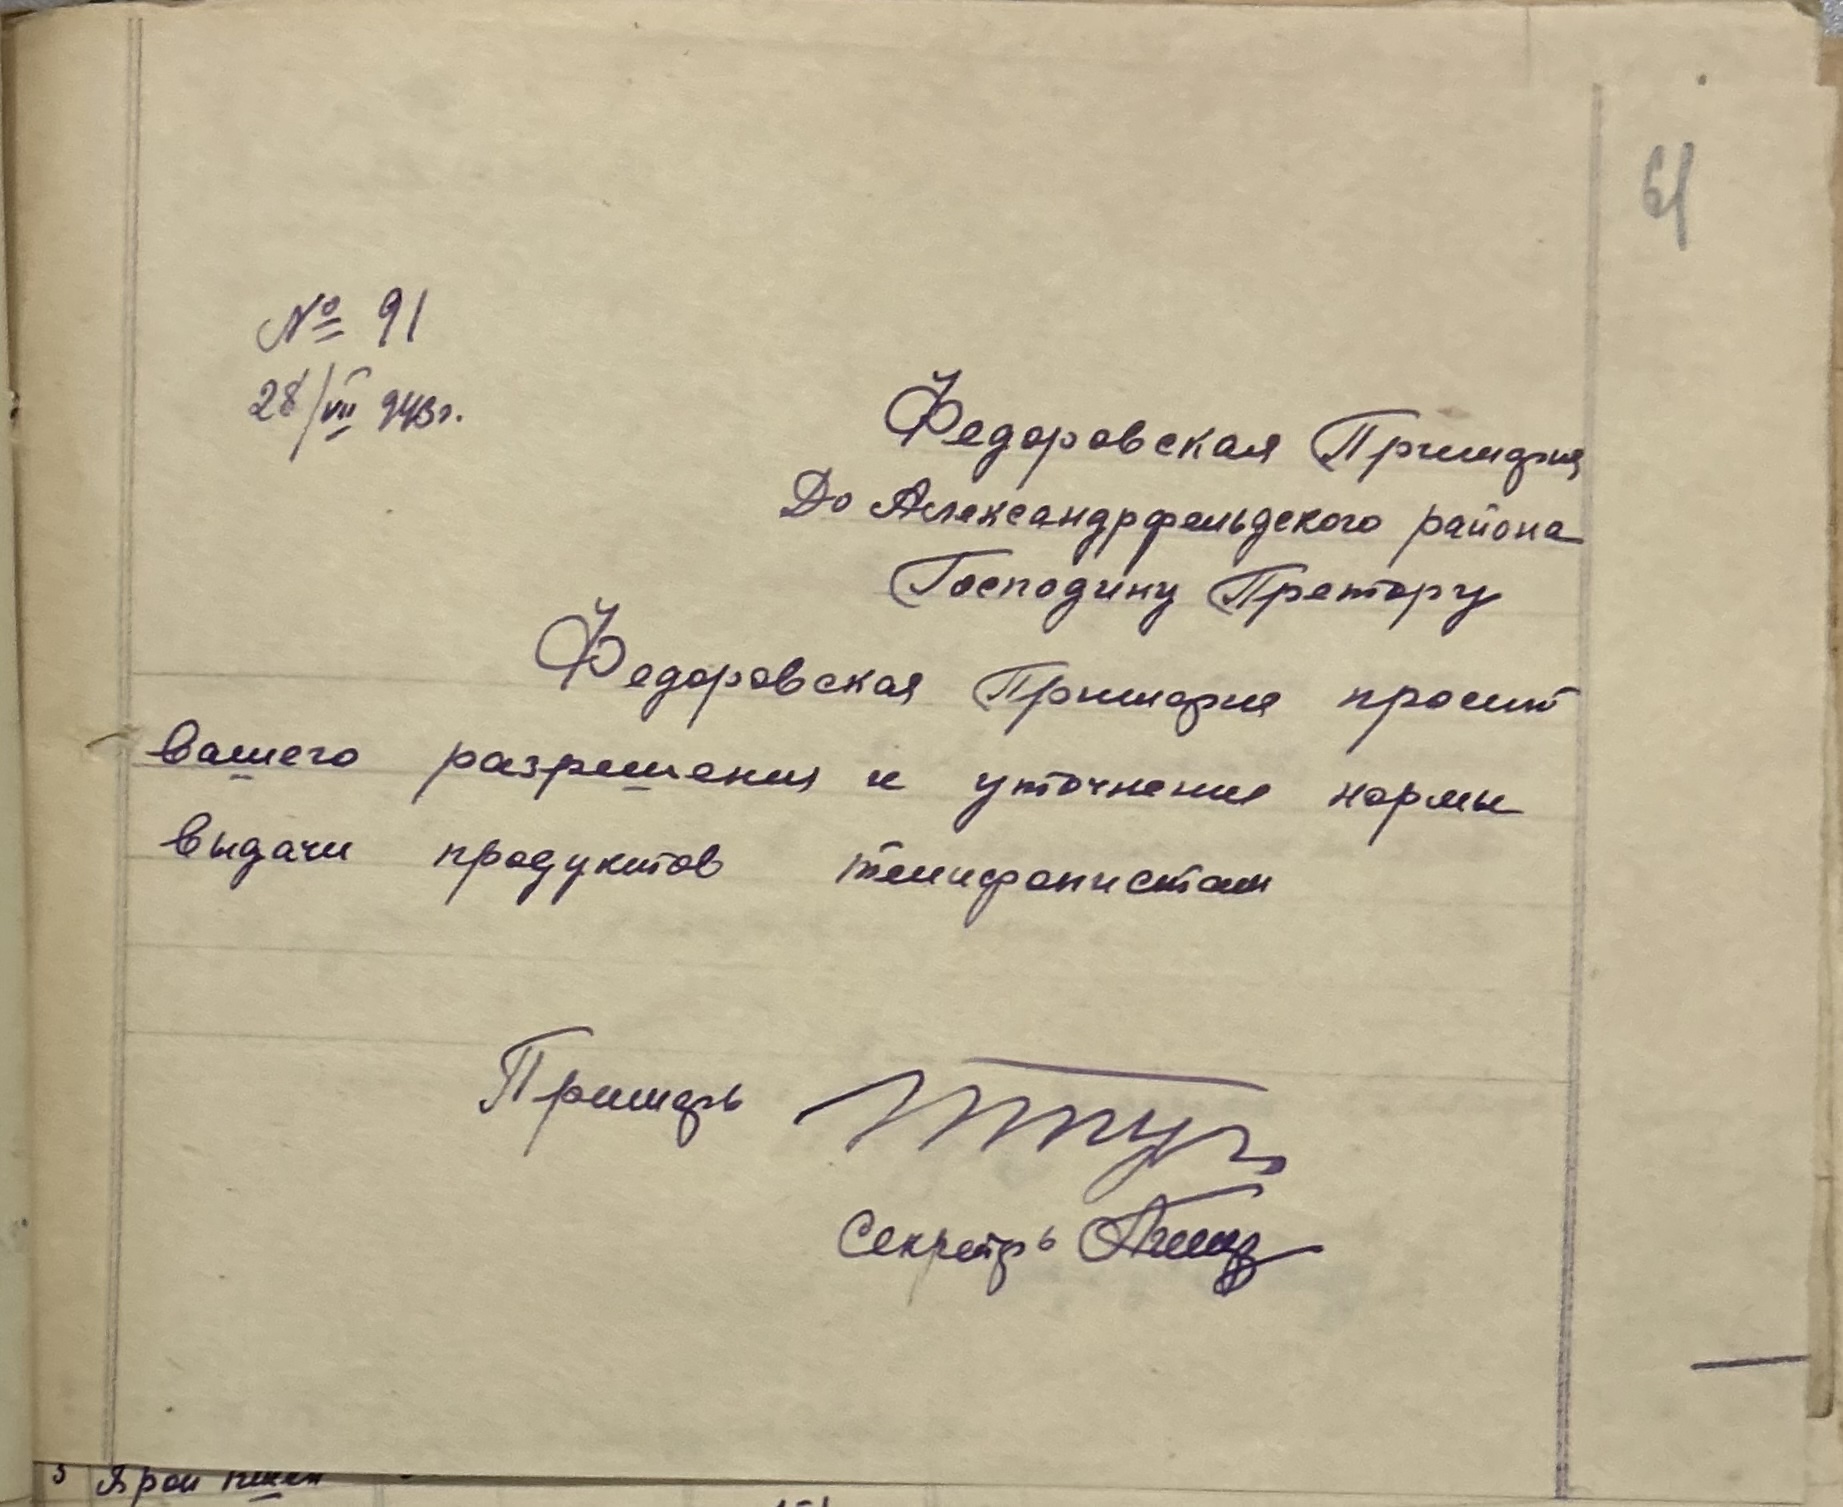 61
№ 91
28/VII 943г.
Федоровская Примария
До Александрфельдского района
Господину Претору
Федоровская Примария просит
вашего разрешения и уточнения нормы
выдачи продуктов телифонистам
Примарь
Секретарь
5 Яров